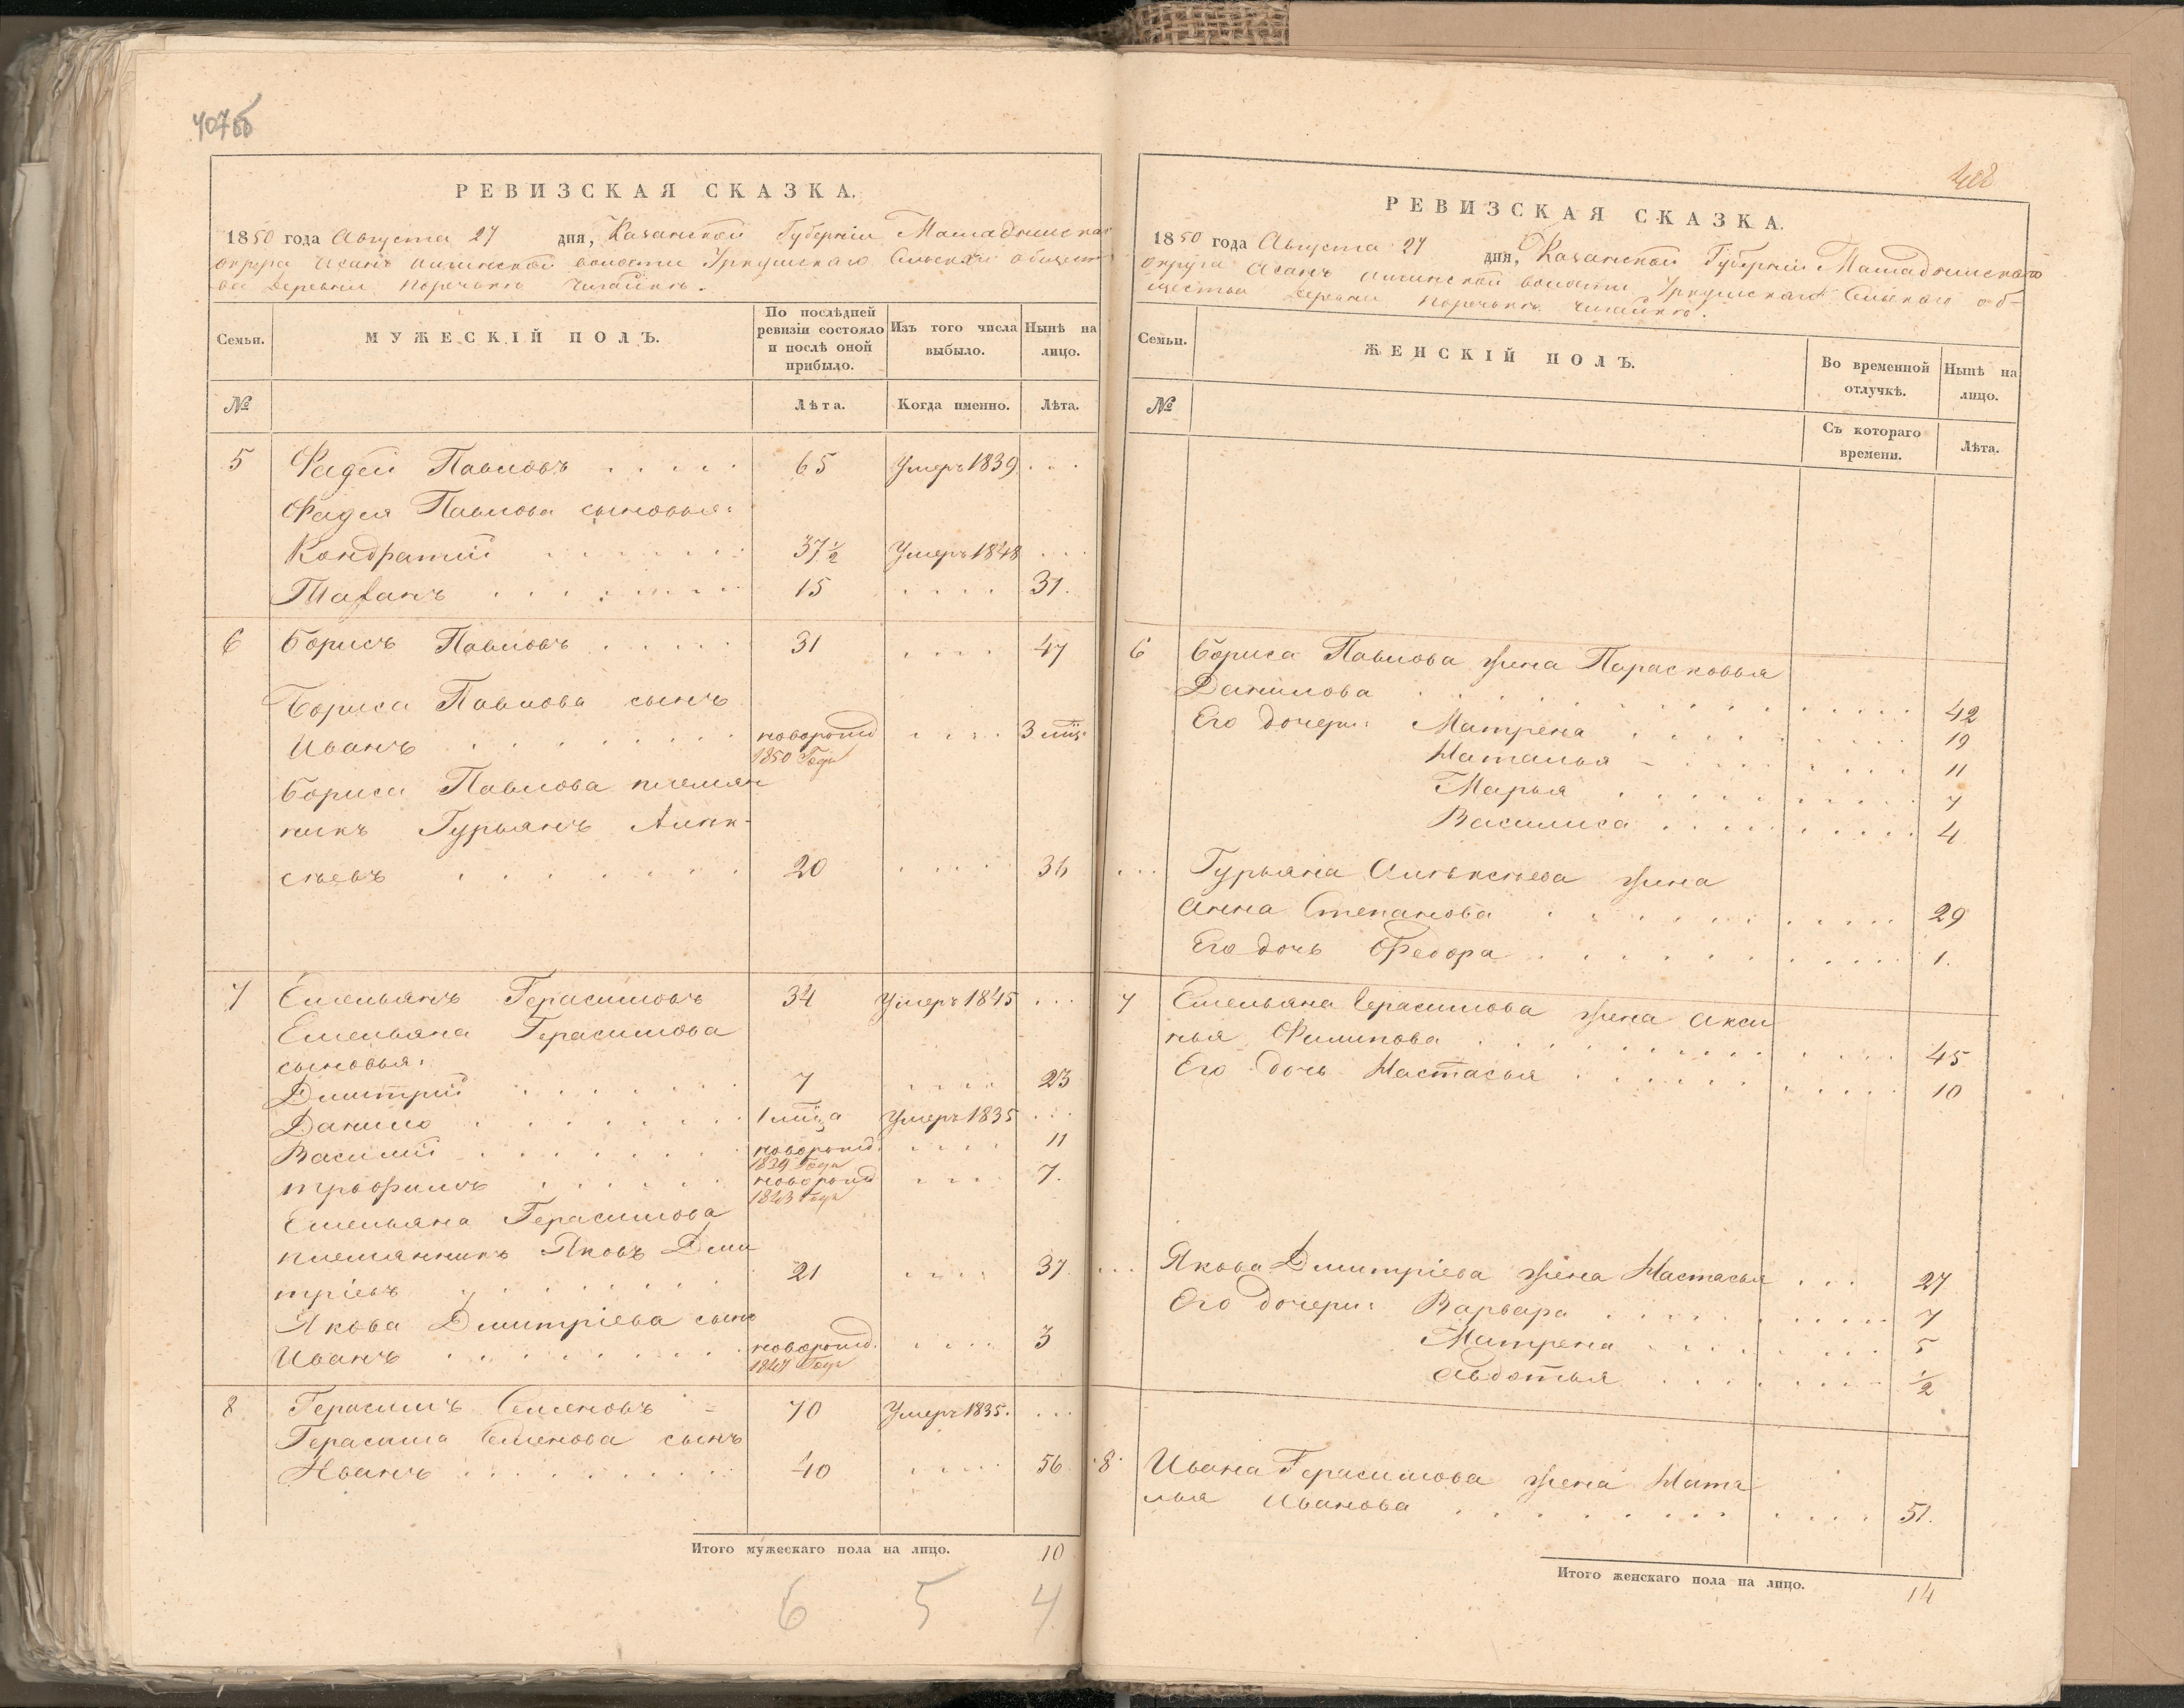 407об
РЕВИЗСКАЯ СКАЗКА.
1850 года Августа 27 дня, Казанской Губерніи Мамадышскаго
округа волости Сельскаго общест
ва деревни поречькъ
Семьи. МУЖЕСКІЙ ПОЛЪ. По послѣдней ревизіи состояло и послѣ оной прибыло. Изъ того числа выбыло. Нынѣ на лицо.
№ Лѣта. Когда именно. Лѣта.
5 Фадей Павловъ 65 Умеръ 1839
Фадея Павлова сыновья:
Кондратій 37½ Умеръ 1848
15 31.
6 Борисъ Павловъ 31 47
Бориса Павлова сынъ
Иванъ новорожд 1850 Года 3 мѣц.
Бориса Павлова племян
никъ Гурьянъ Алек-
сѣевъ 20 36
7 Емельянъ Герасимовъ 34 Умеръ 1845
Емельяна Герасимова
сыновья:
Дмитрій 7 23
Данило 1 мѣца Умеръ 1835
Василій новорожд. 1839 Года 11
трьофимъ новорожд 1843 Года 7.
Емельяна Герасимова
племянникъ Яковъ Дми
тріевъ 21 37
Якова Дмитріева сынъ
Иванъ новорожд. 1847 Года 3
8 Герасимъ Семеновъ 70 Умеръ 1835.
Герасима Семенова сынъ
Иванъ 40 56
Итого мужескаго пола на лицо. 10
6 5 4
408
РЕВИЗСКАЯ СКАЗКА.
1850 года Августа 27 дня, Казанской Губерніи Мамадышскаго
округа волости Сельскаго об-
щества деревни поречькъ
Семьи. ЖЕНСКІЙ ПОЛЪ. Во временной отлучкѣ. Нынѣ на лицо.
№ Съ котораго времени. Лѣта.
6 Бориса Павлова жена Парасковья
Данилова 42
Его дочери: Матрена 19
Наталья 11
Марья 7
Василиса 4
Гурьяна Алѣксѣева жена
Анна Степанова 29
Его дочь Федора 1.
7 Емельяна Герасимова жена Акси
нья Филипова 45
Его дочь Настасья 10
Якова Дмитріева жена Настасья 27
Его дочери: Варвара 7
Матрена 5
Авдотья ½
8 Ивана Герасимова жена Ната
лья Иванова 51.
Итого женскаго пола на лицо. 14